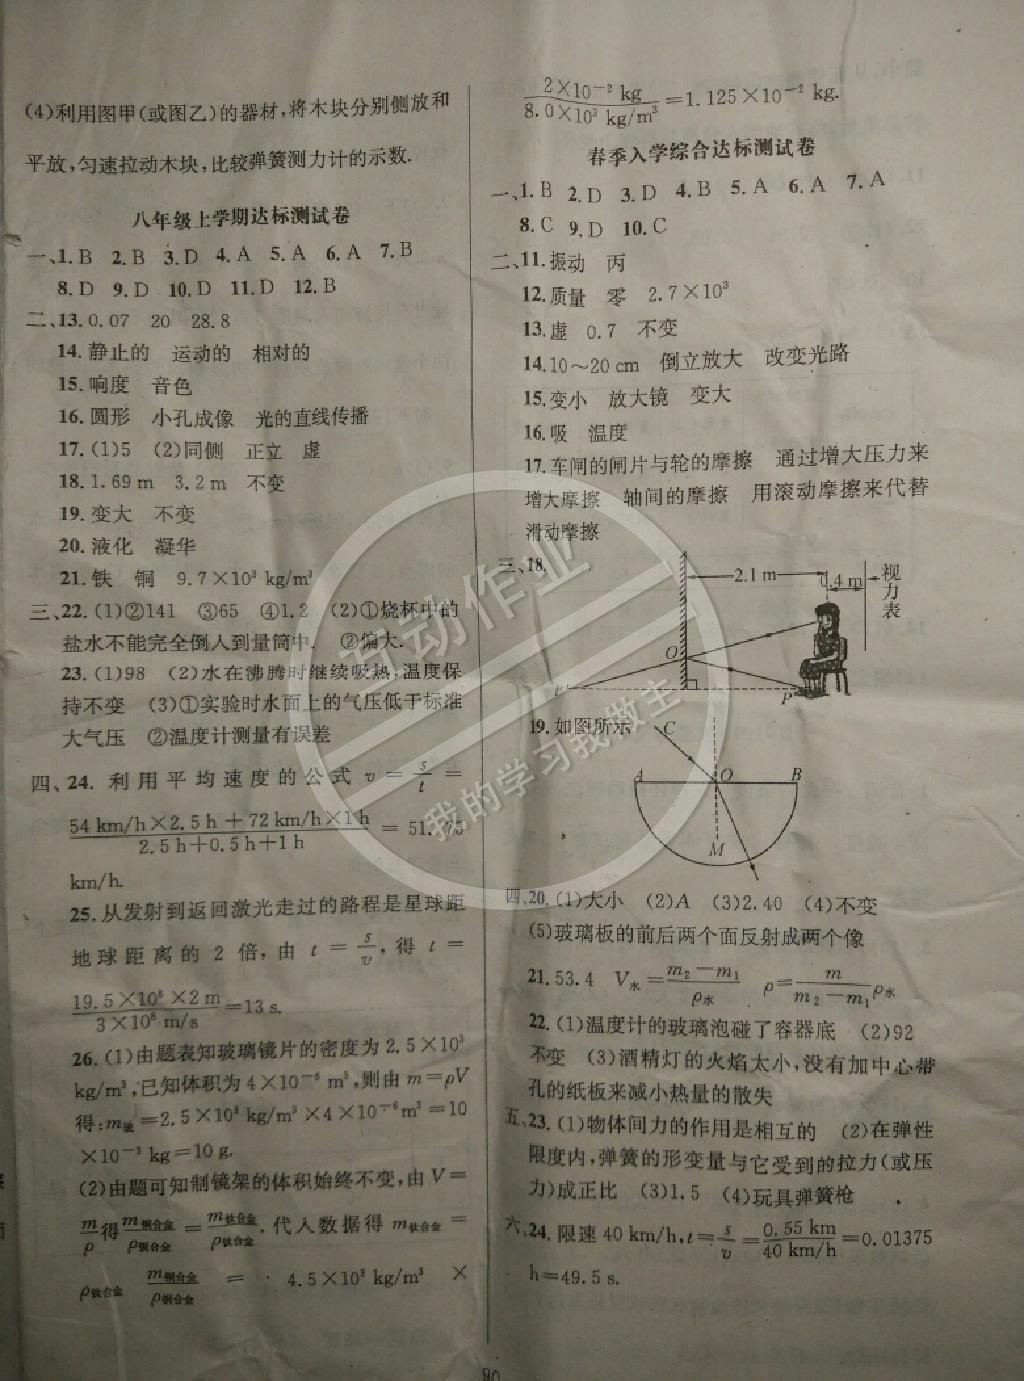 (4)利用图甲(或图乙)的器材,将木块分别侧放和
平放,匀速拉动木块,比较弹簧测力计的示数.
八年级上学期达标测试卷
一、1.B 2.B 3.D 4.A 5.A 6.A 7.B
8.D 9.D 10.D 11.D 12.B
二、13.0.07 20 28.8
14.静止的 运动的 相对的
15.响度 音色
16.圆形 小孔成像 光的直线传播
17.(1)5 (2)同侧 正立 虚
18.1.69 m 3.2 m 不变
19.变大 不变
20.液化 凝华
21.铁 铜 9.7×10³ kg/m³
三、22.(1)②141 ③65 ④1.2 (2)①烧杯中的
盐水不能完全倒人到量筒中. ②偏大.
23.(1)98 (2)水在沸腾时继续吸热,温度保
持不变 (3)①实验时水面上的气压低于标准
大气压 ②温度计测量有误差
四、24.利用平均速度的公式 v = s/t =
54 km/h×2.5 h+72 km/h×1 h / 2.5 h+0.5 h+1 h = 51.75
km/h.
25.从发射到返回激光走过的路程是星球距
地球距离的 2 倍,由 t = s/v,得 t =
19.5×10⁸×2 m / 3×10⁸ m/s =13 s.
26.(1)由题表知玻璃镜片的密度为 2.5×10³
kg/m³,已知体积为 4×10⁻⁶ m³,则由 m=ρV
得:m玻=2.5×10³ kg/m³×4×10⁻⁶ m³=10
×10⁻³ kg=10 g.
(2)由题可知制镜架的体积始终不变,由 V=
m/ρ 得 m铜合金/ρ铜合金 = m钛合金/ρ钛合金. 代人数据得 m钛合金 =
ρ钛合金 m铜合金/ρ铜合金 = 4.5×10³ kg/m³ ×
2×10⁻² kg / 8.0×10³ kg/m³ =1.125×10⁻² kg.
春季入学综合达标测试卷
一、1.B 2.D 3.D 4.B 5.A 6.A 7.A
8.C 9.D 10.C
二、11.振动 丙
12.质量 零 2.7×10³
13.虚 0.7 不变
14.10～20 cm 倒立放大 改变光路
15.变小 放大镜 变大
16.吸 温度
17.车闸的闸片与轮的摩擦 通过增大压力来
增大摩擦 轴间的摩擦 用滚动摩擦来代替
滑动摩擦
三、18.
2.1 m
0.4 m
视力表
O
P′
P
19.如图所示
C
A O B
M
四、20.(1)大小 (2)A (3)2.40 (4)不变
(5)玻璃板的前后两个面反射成两个像
21.53.4 V水 = m₂−m₁/ρ水 ρ= m/m₂−m₁ ρ水
22.(1)温度计的玻璃泡碰了容器底 (2)92
不变 (3)酒精灯的火焰太小,没有加中心带
孔的纸板来减小热量的散失
五、23.(1)物体间力的作用是相互的 (2)在弹性
限度内,弹簧的形变量与它受到的拉力(或压
力)成正比 (3)1.5 (4)玩具弹簧枪
六、24.限速 40 km/h,t= s/v = 0.55 km / 40 km/h =0.01375
h=49.5 s.
90
互动作业
我的学习我做主